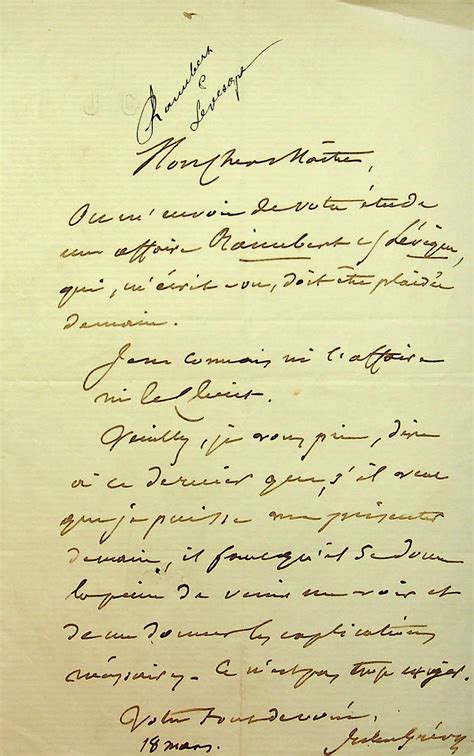 J G
Raimbert
c
Levesque
Mon cher Maître,
On m'envoie de votre étude
une affaire Raimbert c/ Lévêque,
qui, m'écrit-on, doit être plaidée
demain.
Je ne connais ni l'affaire
ni le Client.
Veuillez, je vous prie, dire
à ce dernier que, s'il veut
que je puisse me présenter
demain, il faut qu'il se donne
la peine de venir me voir et
de me donner les explications
nécessaires. Ce n'est pas trop exiger.
Votre tout dévoué.
Jules Grévy
18 mars.